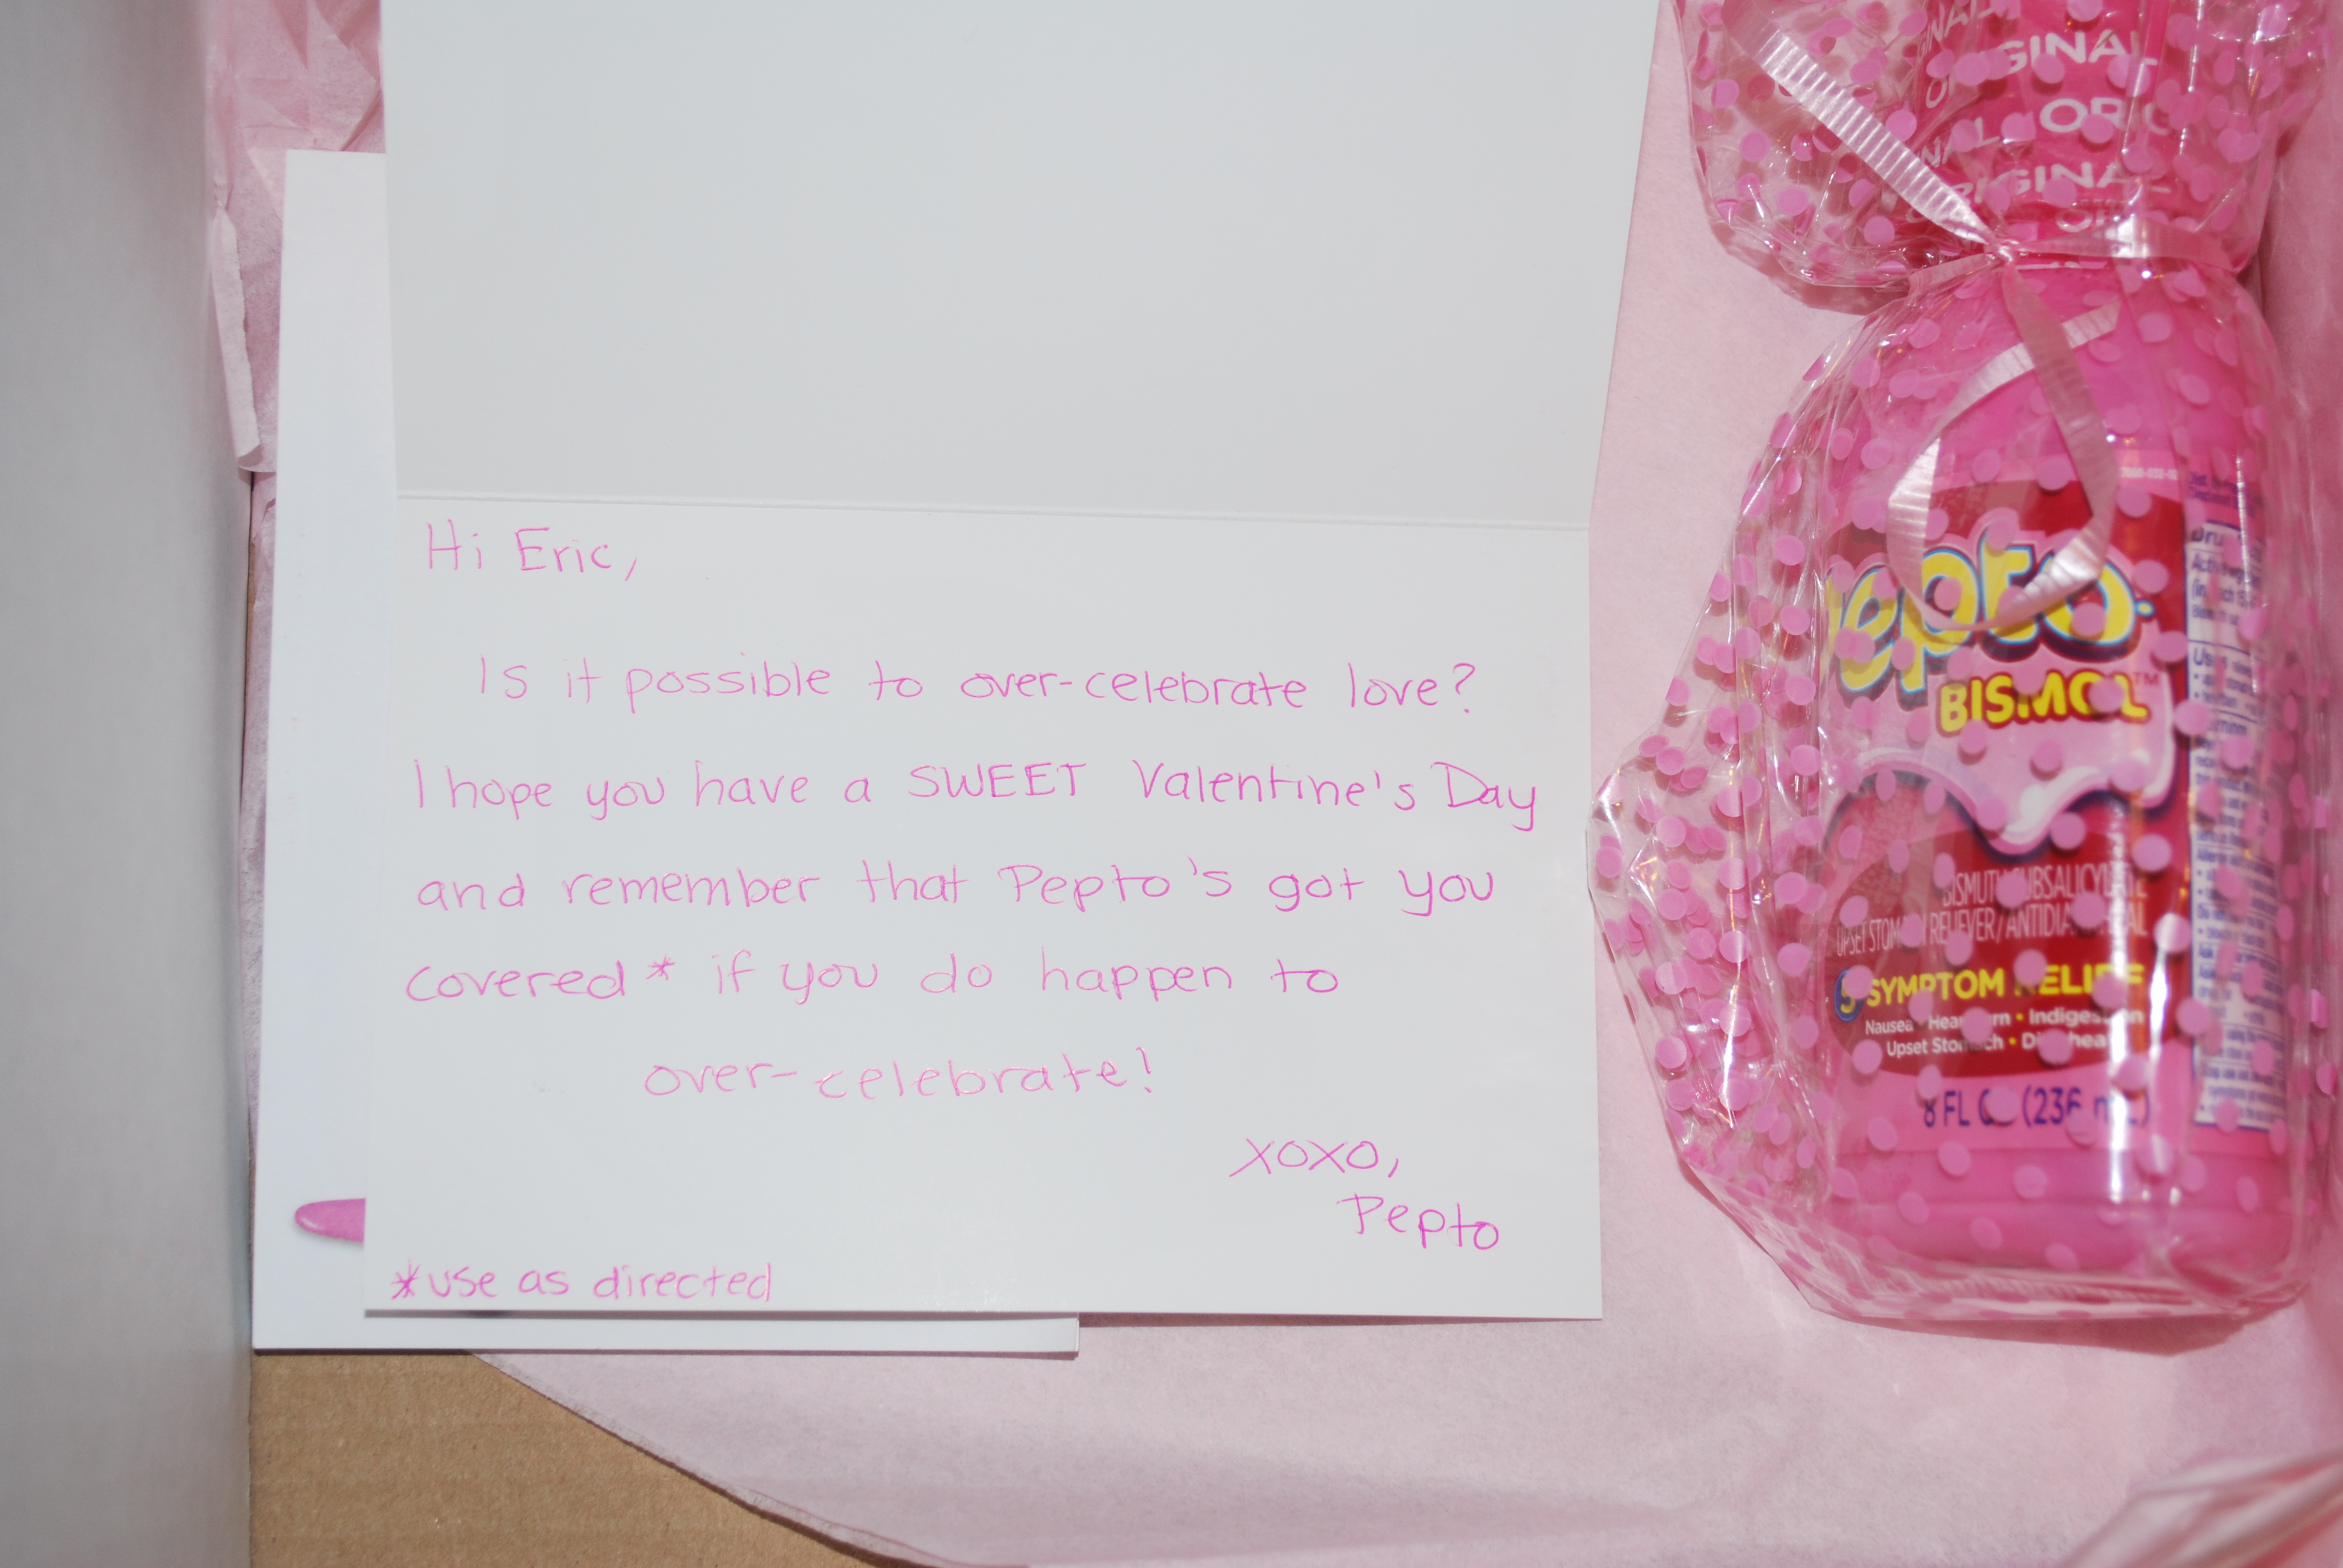 Hi Eric,
Is it possible to over-celebrate love?
I hope you have a SWEET Valentine's Day
and remember that Pepto's got you
covered* if you do happen to
over-celebrate!
xoxo,
Pepto
*use as directed
GINAL
ORIGINAL
Pepto-
BISMOL™
BISMUTH SUBSALICYLATE
UPSET STOMACH RELIEVER/ANTIDIARRHEAL
5 SYMPTOM RELIEF
Nausea • Heartburn • Indigestion
Upset Stomach • Diarrhea
8 FL OZ (236 mL)